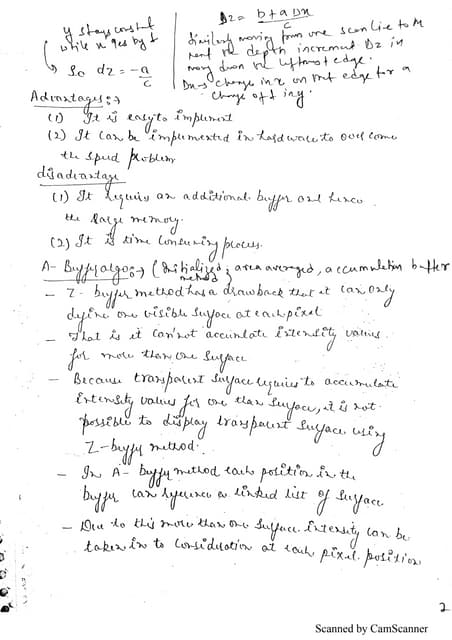 y stays constant
while x ges by 1
So dz = -a/c
Dz = b+a Dx / c
Similarly moving from one scanline to
next the depth increment Dz in
moving down the leftmost edge.
Dx → change in x on edge for a
change of 1 in y.
Advantages :→
(1) It is easy to implement
(2) It can be implemented in hardware to over come
the speed problem
disadvantage
(1) It requires an additional buffer and hence
the large memory.
(2) It is time consuming process.
A- Buffer algo :→ (initialized, area averaged, accumulation buffer
method
– Z- buffer method has a drawback that it can only
define one visible surface at each pixel
– That is it can't accumlate intensity values
for more than one surface
– Because transparent surface requires to accumulate
intensity values for one than surface, it is not
possible to display transparent surface using
Z-buffer method.
– In A- buffer method each position in the
buffer can reference a linked list of surface
– Due to this more than one surface intensity can be
taken in to consideration at each pixel position
2
Scanned by CamScanner